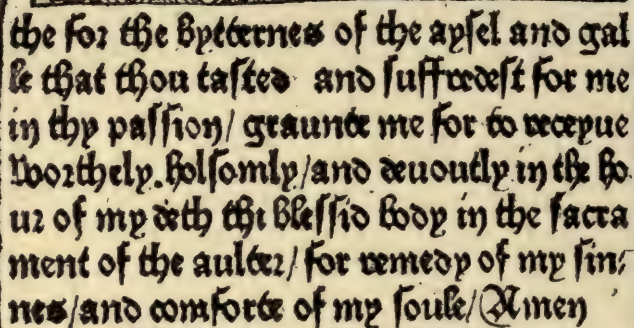 the for the bytternes of the aysel and gal
le that thou tasted and suffredest for me
in thy passion/ graunte me for to receyue
worthely. holsomly/and deuoutly in the ho
ur of my deth thi blessid body in the sacra
ment of the aulter/ for remedy of my sin⸗
nes/and comforte of my soule/Amen